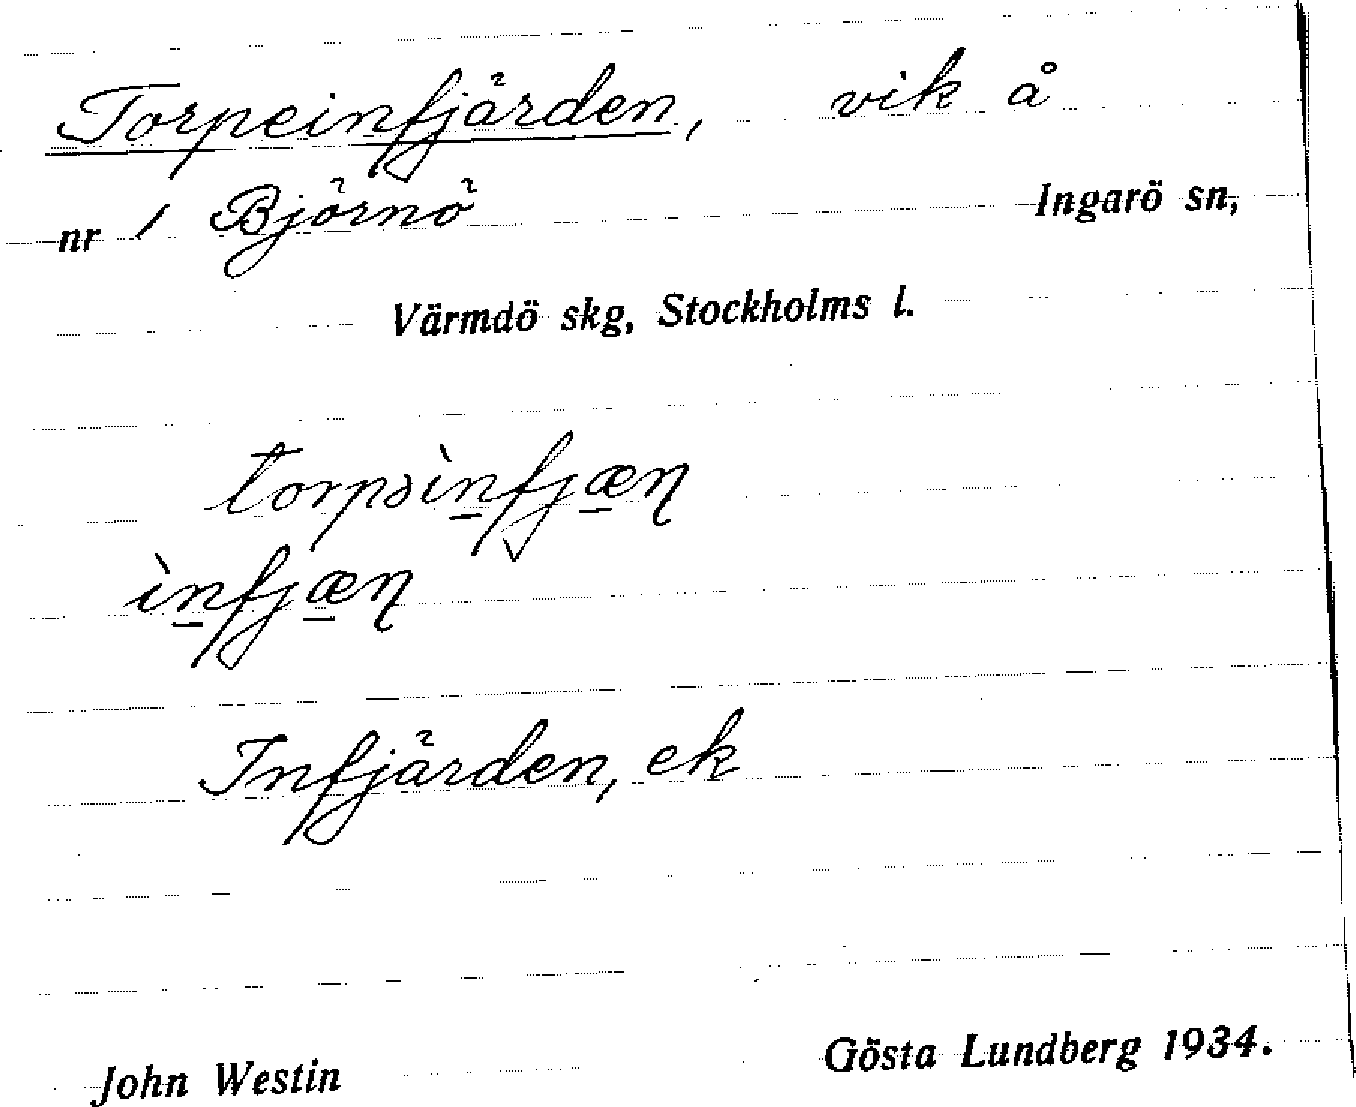 Torpeinfjärden, vik å
nr 1 Björnö Ingarö sn,
Värmdö skg, Stockholms l.
torpəìnfjæɳ
ìnfjæɳ
Infjärden, ek
John Westin Gösta Lundberg 1934.